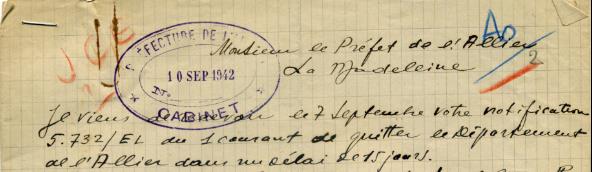 PRÉFECTURE DE L'
10 SEP 1942
CABINET
Ao
2
Monsieur le Préfet de l'Allier
La Madeleine
Je viens de recevoir le 7 Septembre votre notification
5.732/EL du 1 courant de quitter le Département
de l'Allier dans un délai de 15 jours.